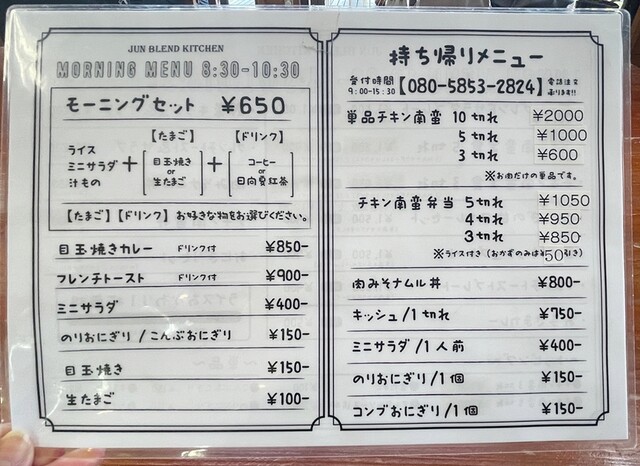 JUN BLEND KITCHEN
MORNING MENU 8:30-10:30
モーニングセット ¥650
ライス
ミニサラダ
汁もの
+
【たまご】
目玉焼き
or
生たまご
+
【ドリンク】
コーヒー
or
日向夏紅茶
【たまご】【ドリンク】お好きな物をお選びください。
目玉焼きカレー ドリンク付 ¥850-
フレンチトースト ドリンク付 ¥900-
ミニサラダ ¥400-
のりおにぎり/こんぶおにぎり ¥150-
目玉焼き ¥150-
生たまご ¥100-
持ち帰りメニュー
受付時間
9:00-15:30
【080-5853-2824】
電話注文
承ります!!
単品チキン南蛮 10切れ ¥2000
5切れ ¥1000
3切れ ¥600
※お肉だけの単品です。
チキン南蛮弁当 5切れ ¥1050
4切れ ¥950
3切れ ¥850
※ライス付き(おかずのみは¥50引き)
肉みそナムル丼 ¥800-
キッシュ/1切れ ¥750-
ミニサラダ/1人前 ¥400-
のりおにぎり/1個 ¥150-
コンブおにぎり/1個 ¥150-